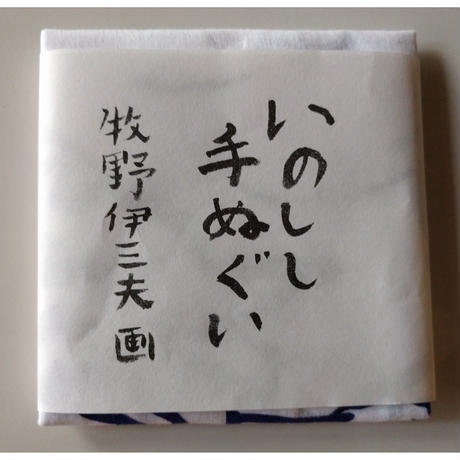 いのしし
手ぬぐい
牧野伊三夫画